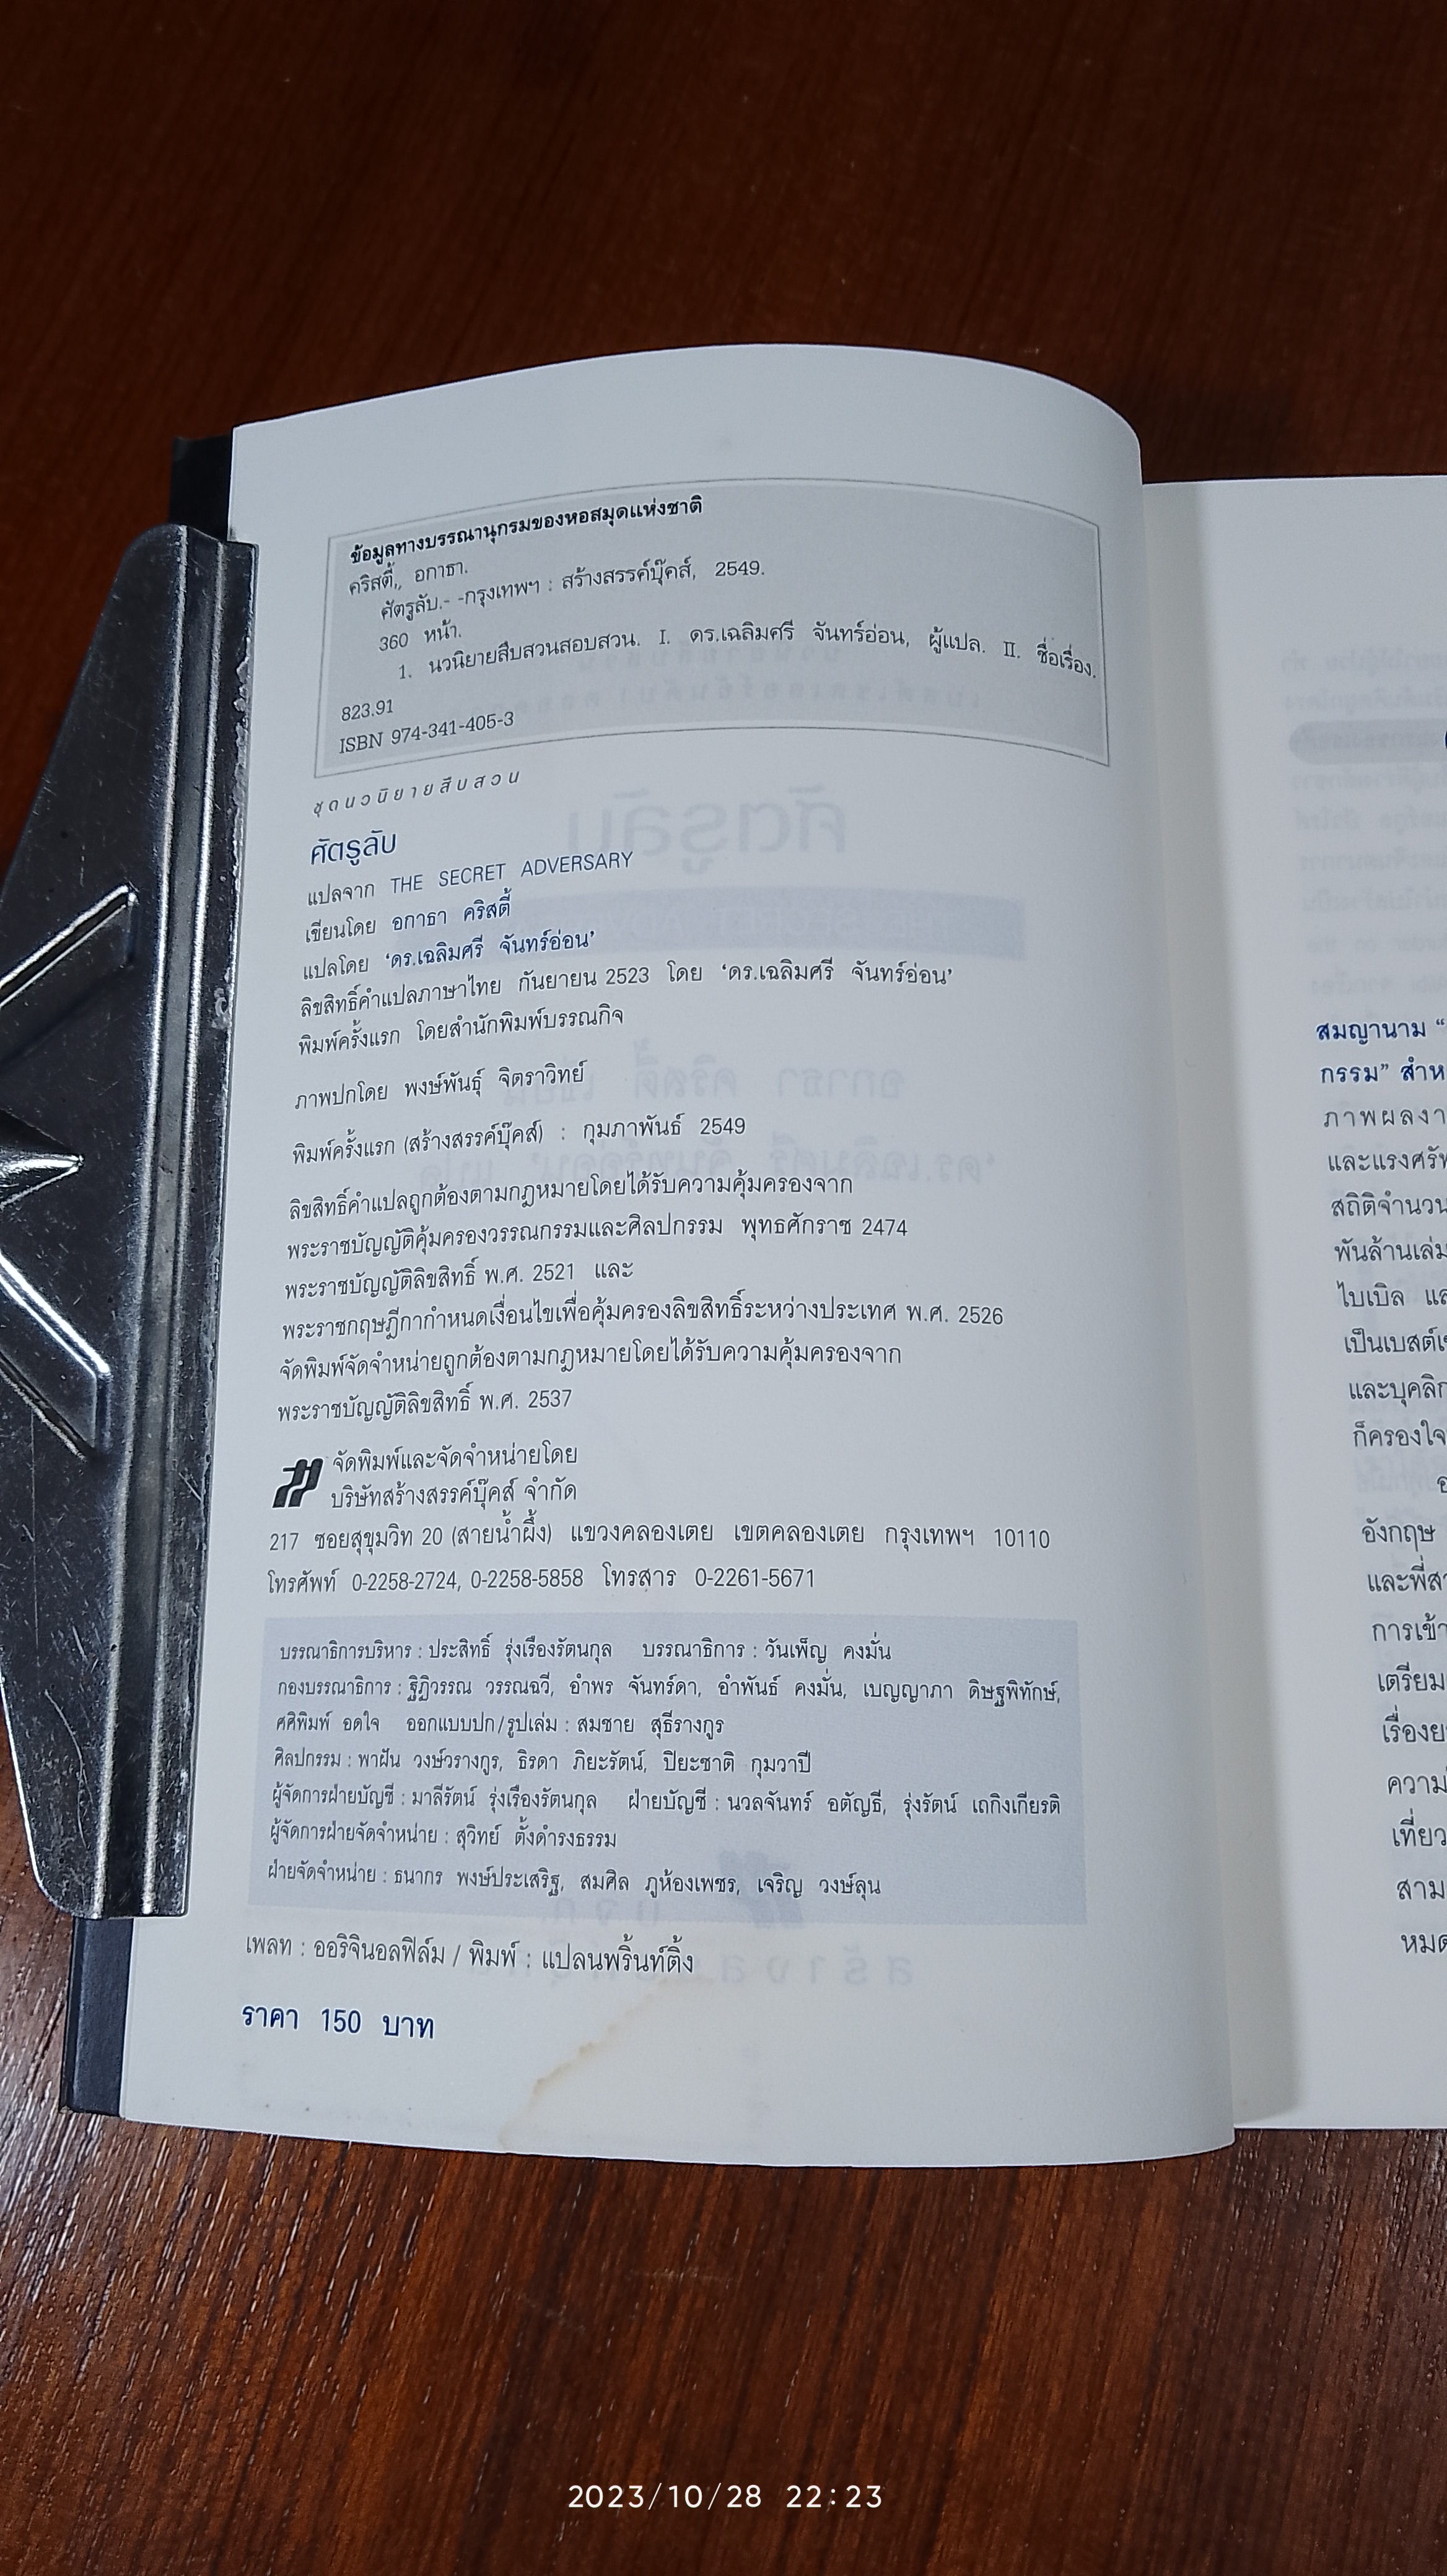 ข้อมูลทางบรรณานุกรมของหอสมุดแห่งชาติ
คริสตี้, อกาธา.
ศัตรูลับ.- -กรุงเทพฯ : สร้างสรรค์บุ๊คส์, 2549.
360 หน้า.
1. นวนิยายสืบสวนสอบสวน. I. ดร.เฉลิมศรี จันทร์อ่อน, ผู้แปล. II. ชื่อเรื่อง.
823.91
ISBN 974-341-405-3
ชุดนวนิยายสืบสวน
ศัตรูลับ
แปลจาก THE SECRET ADVERSARY
เขียนโดย อกาธา คริสตี้
แปลโดย ‘ดร.เฉลิมศรี จันทร์อ่อน’
ลิขสิทธิ์คำแปลภาษาไทย กันยายน 2523 โดย ‘ดร.เฉลิมศรี จันทร์อ่อน’
พิมพ์ครั้งแรก โดยสำนักพิมพ์บรรณกิจ
ภาพปกโดย พงษ์พันธุ์ จิตราวิทย์
พิมพ์ครั้งแรก (สร้างสรรค์บุ๊คส์) : กุมภาพันธ์ 2549
ลิขสิทธิ์คำแปลถูกต้องตามกฎหมายโดยได้รับความคุ้มครองจาก
พระราชบัญญัติคุ้มครองวรรณกรรมและศิลปกรรม พุทธศักราช 2474
พระราชบัญญัติลิขสิทธิ์ พ.ศ. 2521 และ
พระราชกฤษฎีกากำหนดเงื่อนไขเพื่อคุ้มครองลิขสิทธิ์ระหว่างประเทศ พ.ศ. 2526
จัดพิมพ์จัดจำหน่ายถูกต้องตามกฎหมายโดยได้รับความคุ้มครองจาก
พระราชบัญญัติลิขสิทธิ์ พ.ศ. 2537
จัดพิมพ์และจัดจำหน่ายโดย
บริษัทสร้างสรรค์บุ๊คส์ จำกัด
217 ซอยสุขุมวิท 20 (สายน้ำผึ้ง) แขวงคลองเตย เขตคลองเตย กรุงเทพฯ 10110
โทรศัพท์ 0-2258-2724, 0-2258-5858 โทรสาร 0-2261-5671
บรรณาธิการบริหาร : ประสิทธิ์ รุ่งเรืองรัตนกุล บรรณาธิการ : วันเพ็ญ คงมั่น
กองบรรณาธิการ : ฐิฏิวรรณ วรรณฉวี, อำพร จันทร์ดา, อำพันธ์ คงมั่น, เบญญาภา ดิษฐพิทักษ์,
ศศิพิมพ์ อดใจ ออกแบบปก/รูปเล่ม : สมชาย สุธีรางกูร
ศิลปกรรม : พาฝัน วงษ์วรางกูร, ธิรดา ภิยะรัตน์, ปิยะชาติ กุมวาปี
ผู้จัดการฝ่ายบัญชี : มาลีรัตน์ รุ่งเรืองรัตนกุล ฝ่ายบัญชี : นวลจันทร์ อตัญธี, รุ่งรัตน์ เถกิงเกียรติ
ผู้จัดการฝ่ายจัดจำหน่าย : สุวิทย์ ตั้งดำรงธรรม
ฝ่ายจัดจำหน่าย : ธนากร พงษ์ประเสริฐ, สมศิล ภูห้องเพชร, เจริญ วงษ์ลุน
เพลท : ออริจินอลฟิล์ม / พิมพ์ : แปลนพริ้นท์ติ้ง
ราคา 150 บาท
สมญานาม “
กรรม” สำห
ภาพผลงา
และแรงศรัท
สถิติจำนวน
พันล้านเล่ม
ไบเบิล แล
เป็นเบสต์เ
และบุคลิก
ก็ครองใจ
อ
อังกฤษ
และพี่สา
การเข้า
เตรียม
เรื่องย
ความ
เที่ยว
สาม
หมด
2023/10/28 22:23